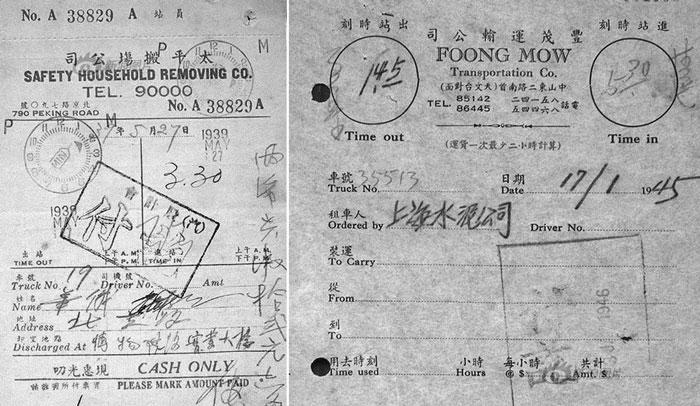 No. A 38829 A 站員
司公塲搬平太
SAFETY HOUSEHOLD REMOVING CO.
TEL. 90000
No. A 38829 A
北京路七九〇號
790 PEKING ROAD
P M
P M
年 5 月 27 日
1939
MAY
27
3.30
1939
MAY
付
出站 上午 A.M. 下午 P.M.
TIME OUT
進站 上午 A.M. 下午 P.M.
TIME IN
車號 司機號
Truck No. 19 Driver No. Amt
姓名
Name
地址
Address 北京路
卸空地點
Discharged At 博物院路實業大樓
叨光惠現 CASH ONLY
PLEASE MARK AMOUNT PAID
刻時站出
司公輸運茂豐
刻時站進
FOONG MOW
Transportation Co.
(面對台文天)首南路二東山中
TEL. 85142 86445
八五一四二 八六四四五 話電
145
5.30
Time out
Time in
(運貨一次最少二小時計算)
車號 日期
Truck No. 35513 Date 17/1 1945
租車人
Ordered by 上海水泥公司 Driver No.
裝運
To Carry
從
From
到
To
1946
用去時刻 小時 每小時 共計
Time used Hours @ $ Amt. $